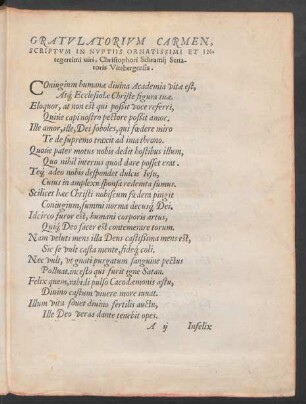 GRATVLATORIVM CARMEN,
SCRIPTVM IN NVPTIIS ORNATISSIMI ET IN-
tegerrimi uiri, Christophori Schrantij Sena-
toris Vitebergensis.
Coniugium humanæ diuina Academia uitæ est,
Atq; Ecclesiolæ Christe figura tuæ.
Eloquor, at non est qui possit uoce referri,
Quinie capi nostro pectore possit amor.
Ille amor, ille, Dei soboles, qui fœdere miro
Te de supremo traxit ad ima throno.
Quouie pater motus nobis dedit hostibus illum,
Quo nihil internus quod dare posset erat.
Teq; adeo nobis despondet dulcis Iesu,
Cuius in amplexu sponsa redempta sumus.
Scilicet hæc Christi nobiscum fœdera pingit
Coniugium, summi norma decusq; Dei.
Idcirco furor est, humani corporis artus,
Quiq; Deo sacer est contemerare torum.
Nam uelut mens illa Dei castissima mens est,
Sic se uult casta mente, fideq; coli.
Nec uult, ut gnati purgatum sanguine pectus
Polluat, in esto qui furit igne Satan.
Felix quem, rabidi pulso Cacodæmonis astu,
Diuino castum uiuere more iuuat.
Illum uita fouet diuino fertilis auctu,
Ille Deo ueras dante tenebit opes.
A ij Infelix